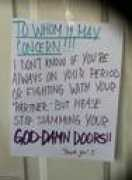 TO WHOM IT MAY
CONCERN!!!
I DON'T KNOW IF YOU'RE
ALWAYS ON YOUR PERIOD
OR FIGHTING WITH YOUR
"PARTNER" BUT PLEASE
STOP SLAMMING YOUR
GOD-DAMN DOORS!!
Thank you! :)